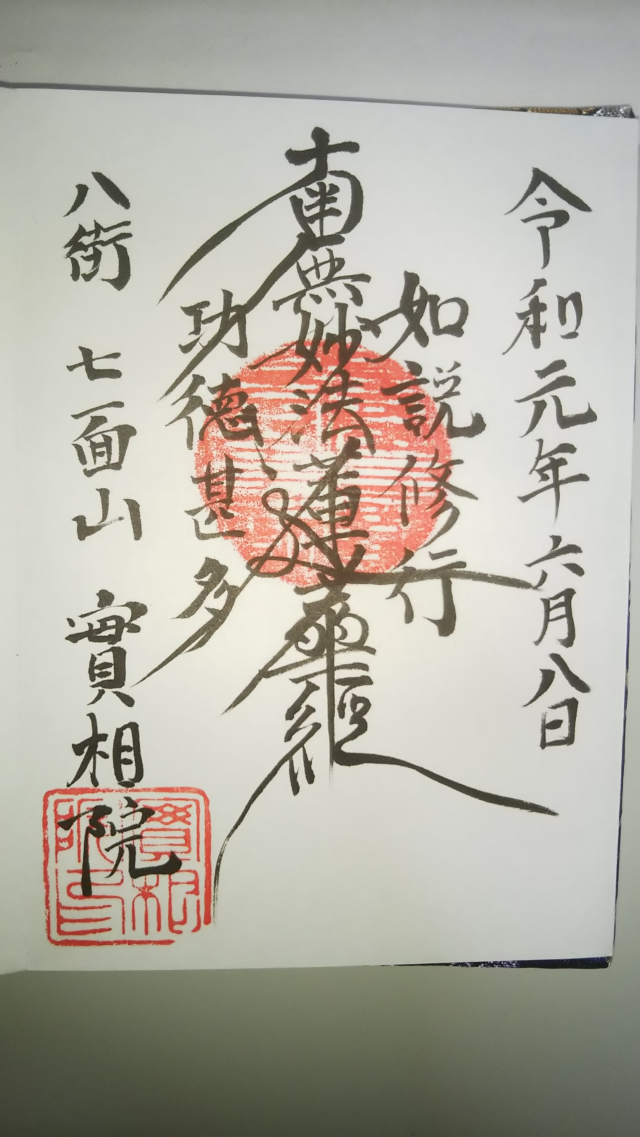 令和元年六月八日
如説修行
南無妙法蓮華経
功徳甚多
八街 七面山 實相院
實相院印